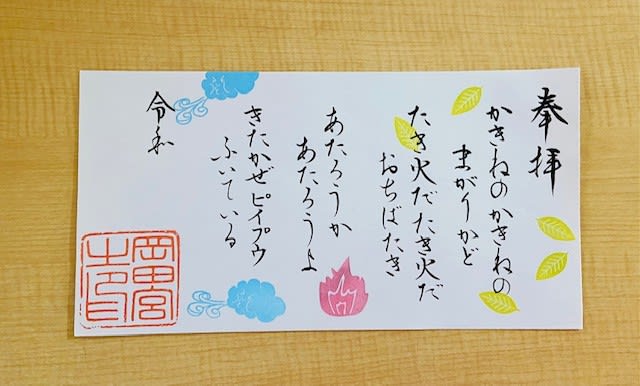 奉拝
かきねのかきねの
まがりかど
たき火だたき火だ
おちばたき
あたろうか
あたろうよ
きたかぜピイプウ
ふいている
令和
岡田宮